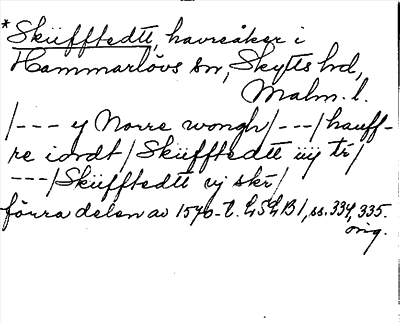 *Sküfftedtt, havreåker i
Hammarlövs sn, Skytts hd,
Malm. l.
/--- y Norre wongh/---/hauff-
re iordt/Sküfftedtt üÿ tr/
---/Sküfftedtt vj skr/
förra delen av 1570-t. LSLB1, ss. 334, 335.
orig.